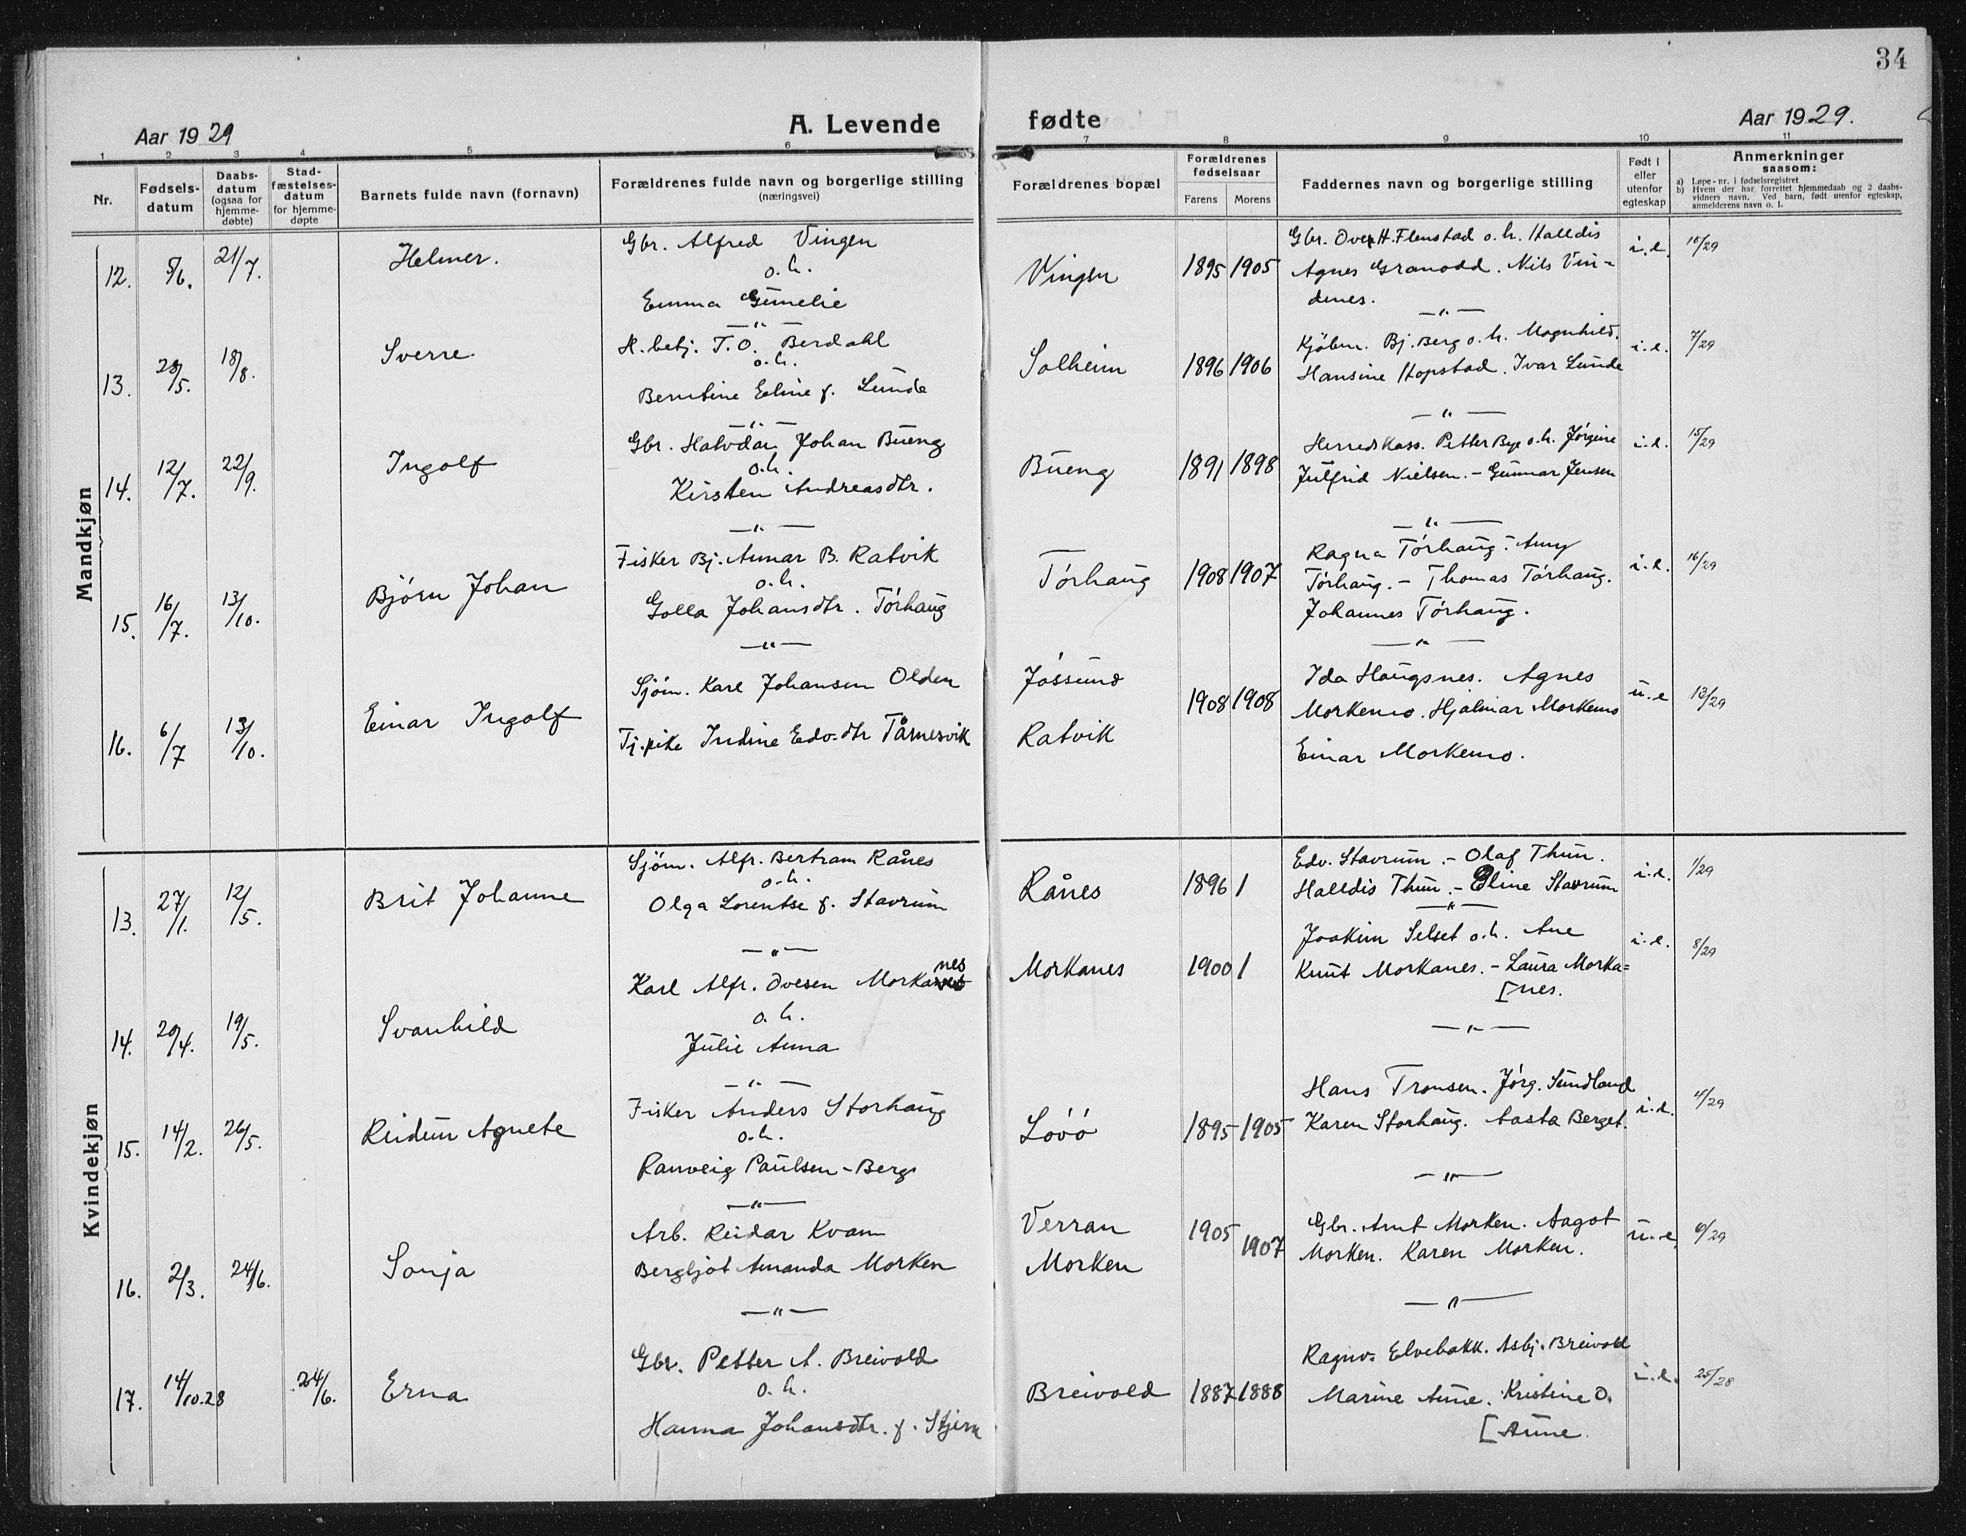 34
Aar 1929
A. Levende
fødte
Aar 1929.
1 2 3 4 5 6 7 8 9 10 11
Nr.
Fødsels-
datum
Daabs-
datum
(ogsaa for
hjemme-
døbte)
Stad-
fæstelses-
datum
for hjemme-
døpte
Barnets fulde navn (fornavn)
Forældrenes fulde navn og borgerlige stilling
(næringsvei)
Forældrenes bopæl
Forældrenes
fødselsaar
Farens Morens
Faddernes navn og borgerlige stilling
Født i
eller
utenfor
egteskap
Anmerkninger
saasom:
a) Løpe-nr. i fødselsregistret
b) Hvem der har forrettet hjemmedaab og 2 daabs-
vidners navn. Ved barn, født utenfor egteskap,
anmelderens navn o. l.
Mandkjøn
12. 5/6. 21/7. Helmer. Gbr. Alfred Vingen
o.h.
Emma Gunelie
Vingen 1895 1905
Gbr. Ove H. Flenstad o.h. Halldis
Agnes Granodd. Nils Vin-
denes.
i.e. 10/29
—"—
13. 28/5. 18/8. Sverre. H.betj. T.O. Berdahl
o.h.
Berntine Eline f. Lunde
Solheim 1896 1906
Kjøbm. Bj. Berg o.h. Magnhild.
Hansine Hopstad. Ivar Lunde
i.e. 7/29
—"—
14. 12/7. 22/9. Ingolf Gbr. Halvdan Johan Bueng
o.h.
Kirsten Andreasdtr.
Bueng 1891 1898
Herredskass. Petter Bye o.h. Jørgine
Julfrid Nielsen. - Gunnar Jensen
i.e. 15/29
—"—
15. 16/7. 13/10. Bjørn Johan Fisker Bj. Annar B. Ratvik
o.h.
Golla Johansdtr. Tørhaug
Tørhaug 1908 1907
Ragna Tørhaug - Amy
Tørhaug. - Thomas Tørhaug.
Johannes Tørhaug.
i.e. 16/29
—"—
16. 6/7 13/10. Einar Ingolf Sjøm. Karl Johansen Olden
Tj.pike Indine Edv.dtr Tårnesvik
Jøssund
Ratvik
1908 1908
Ida Haugsnes. Agnes
Morkemo. Hjalmar Morkemo
Einar Morkemo.
u.e 13/29
Kvindekjøn
13. 27/1. 12/5. Brit Johanne Sjøm. Alfr. Bertram Rånes
o.h.
Olga Lorentse f. Stavrum
Rånes 1896 1
Edv. Stavrum. - Olaf Thun.
Halldis Thun. - Eline Stavrum
i.e. 1/29
—"—
14. 20/4. 19/5. Svanhild Karl Alfr. Ovesen Morkanes
o.h.
Julie Anna
Morkanes 1900 1
Joakim Selset o.h. Ane
Knut Morkanes. - Laura Morka=
[nes.
i.e. 8/29
—"—
15. 14/2. 26/5. Reidun Agnete Fisker Anders Storhaug
o.h.
Ranveig Paulsen-Berg
Løvø 1895 1905
Hans Tronsen. Jørg. Sundland
Karen Storhaug. Aasta Berget.
i.e. 4/29
—"—
16. 2/3. 24/6. Sonja Arb. Reidar Kvam
Bergljot Amanda Morken
Verran
Morken
1905 1907
Gbr. Arnt Morken. Aagot
Morken. Karen Morken.
u.e. 6/29
—"—
17. 14/10.28 24/6. Erna Gbr. Petter A. Breivold
o.h.
Hanna Johansdtr. f. Stjern
Breivold 1887 1888
Ragnv. Elvebakk. Asbj. Breivold
Marine Aune. Kristine O.
[Aune.
i.e. 25/28